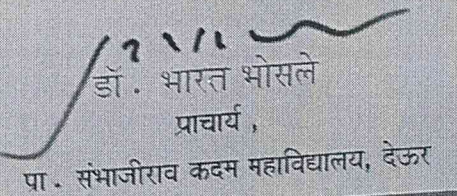 डॉ. भारत भोसले
प्राचार्य,
पा. संभाजीराव कदम महाविद्यालय, देऊर